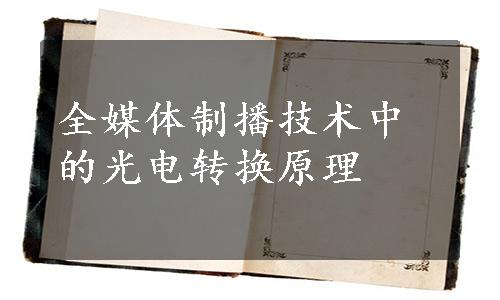 全媒体制播技术中
的光电转换原理